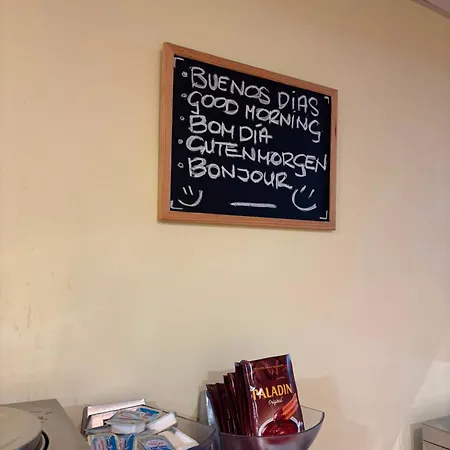 • BUENOS DÍAS
• GOOD MORNING
• BOM DÍA
• GUTENMORGEN
• BONJOUR
PALADIN
Original